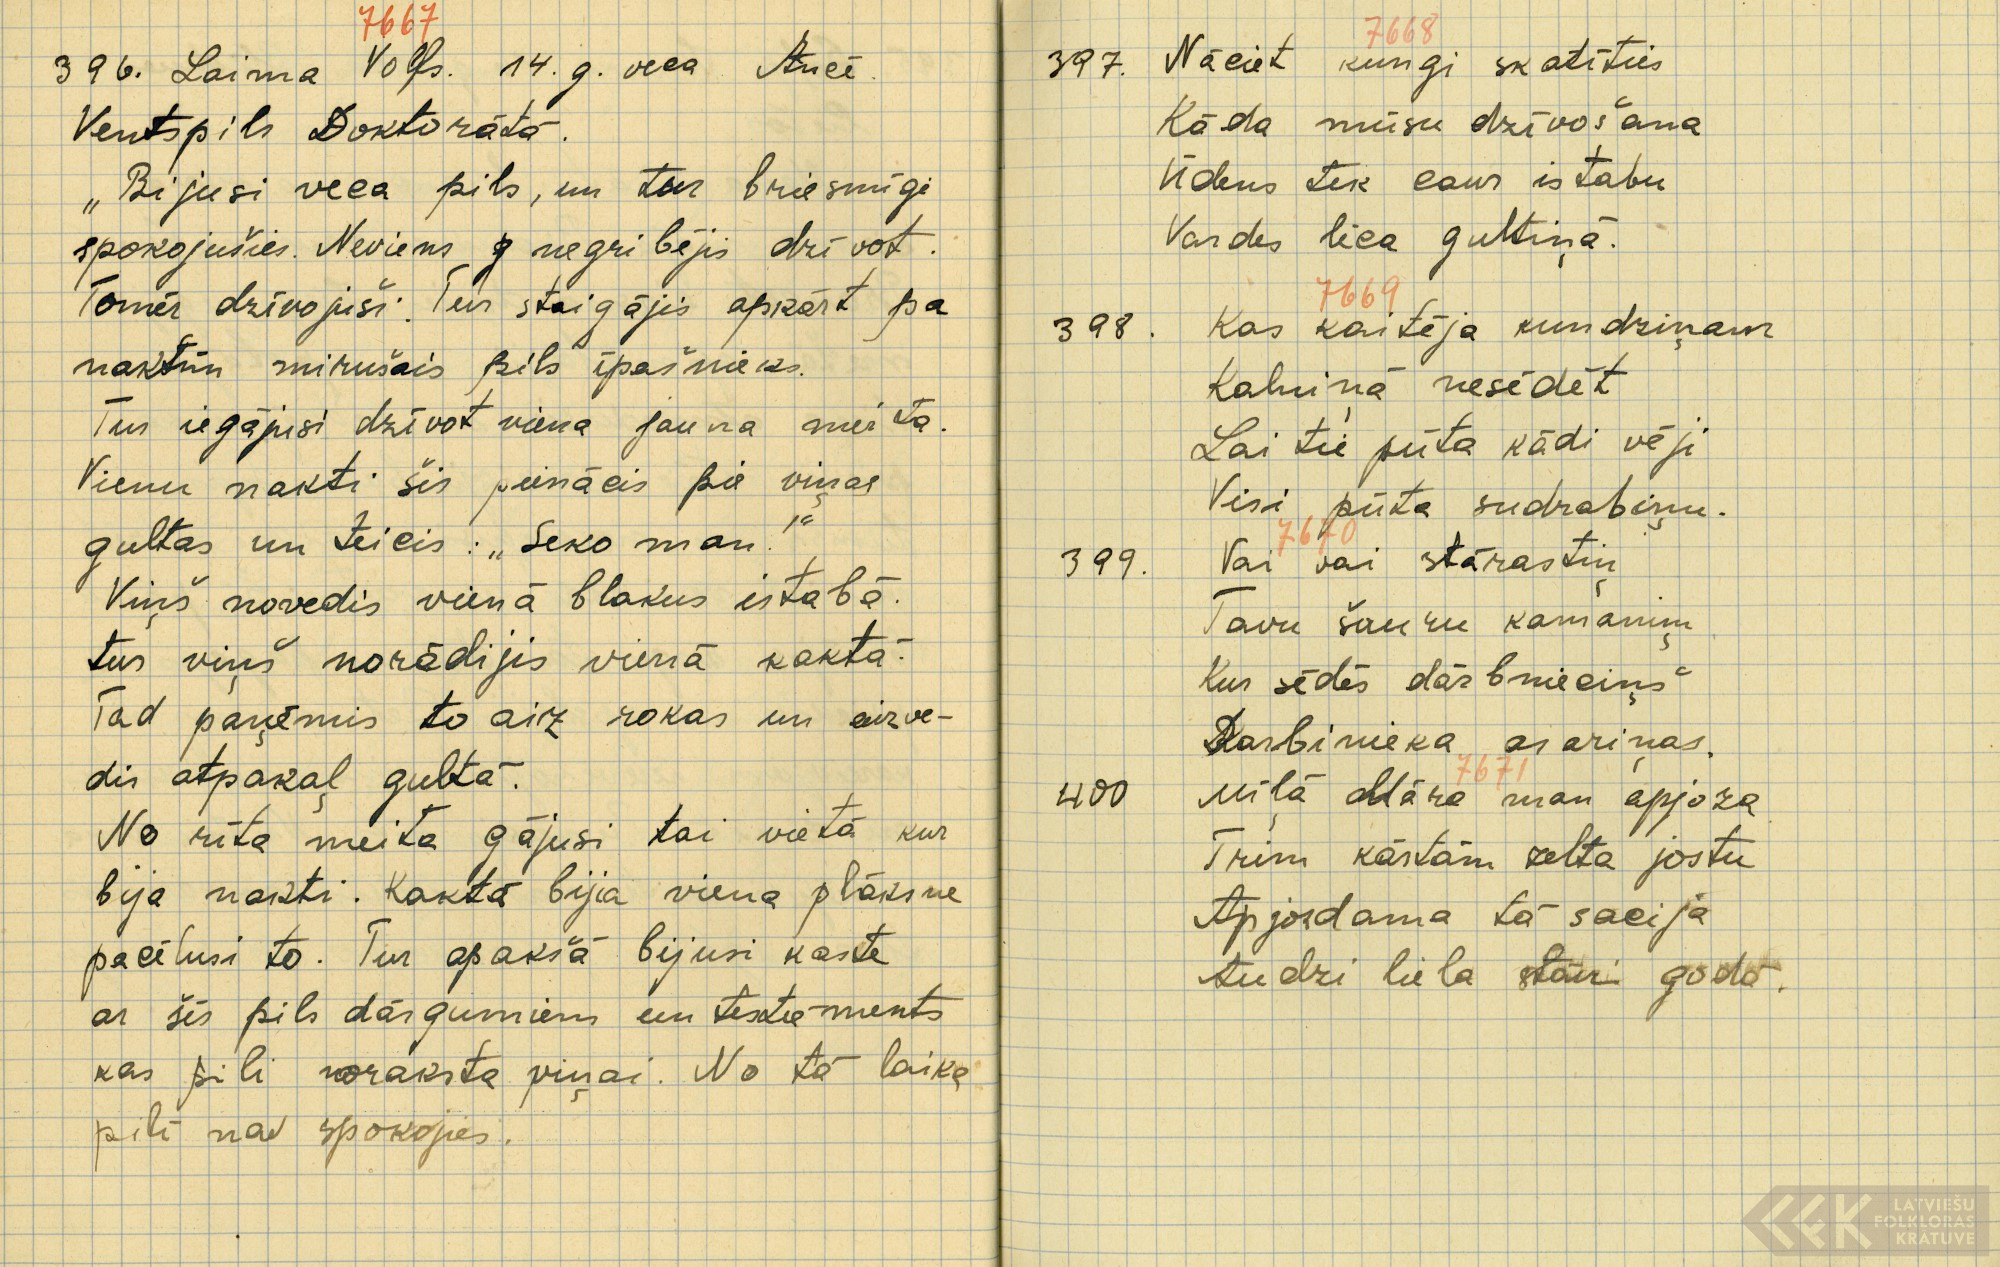 7667
396. Laima Volfs. 14. g. veca Ancē.
Ventspils Doktorātā.
„Bijusi veca pils, un tur briesmīgi
spokojušies. Neviens negribējis dzīvot.
Tomēr dzīvojuši. Tur staigājis apkārt pa
naktīm mirušais pils īpašnieks.
Tur iegājusi dzīvot viena jauna meita.
Vienu nakti šis pienācis pie viņas
gultas un teicis: „Seko man!“
Viņš novedis vienā blakus istabā.
tur viņš norādijis vienā kaktā.
Tad paņēmis to aiz rokas un aizve-
dis atpakaļ gultā.
No rīta meita gājusi tai vietā kur
bija nakti. Kaktā bija viena plāksne
pacēlusi to. Tur apakšā bijusi kaste
ar šīs pils dārgumiem un testaments
kas pili noraksta viņai. No tā laika
pilī nav spokojies.
7668
397. Nāciet kungi skatīties
Kāda mūsu dzīvošana
Ūdens tek caur istabu
Vardes lēca gultiņā.
7669
398. Kas kaitēja kundziņam
Kalniņā nesēdēt
Lai tie pūta kādi vēji
Visi pūta sudrabiņu.
7670
399. Vai vai stārastiņ
Tavu šauru kamaniņ
Kur sēdēs dārbnieciņš
Darbinieka asariņas.
7671
400 Mīļā Māra man apjoza
Trim kārtām zelta jostu
Apjozdama tā sacīja
tudzi liela stāvi godā.
LATVIEŠU
FOLKLORAS
KRĀTUVE